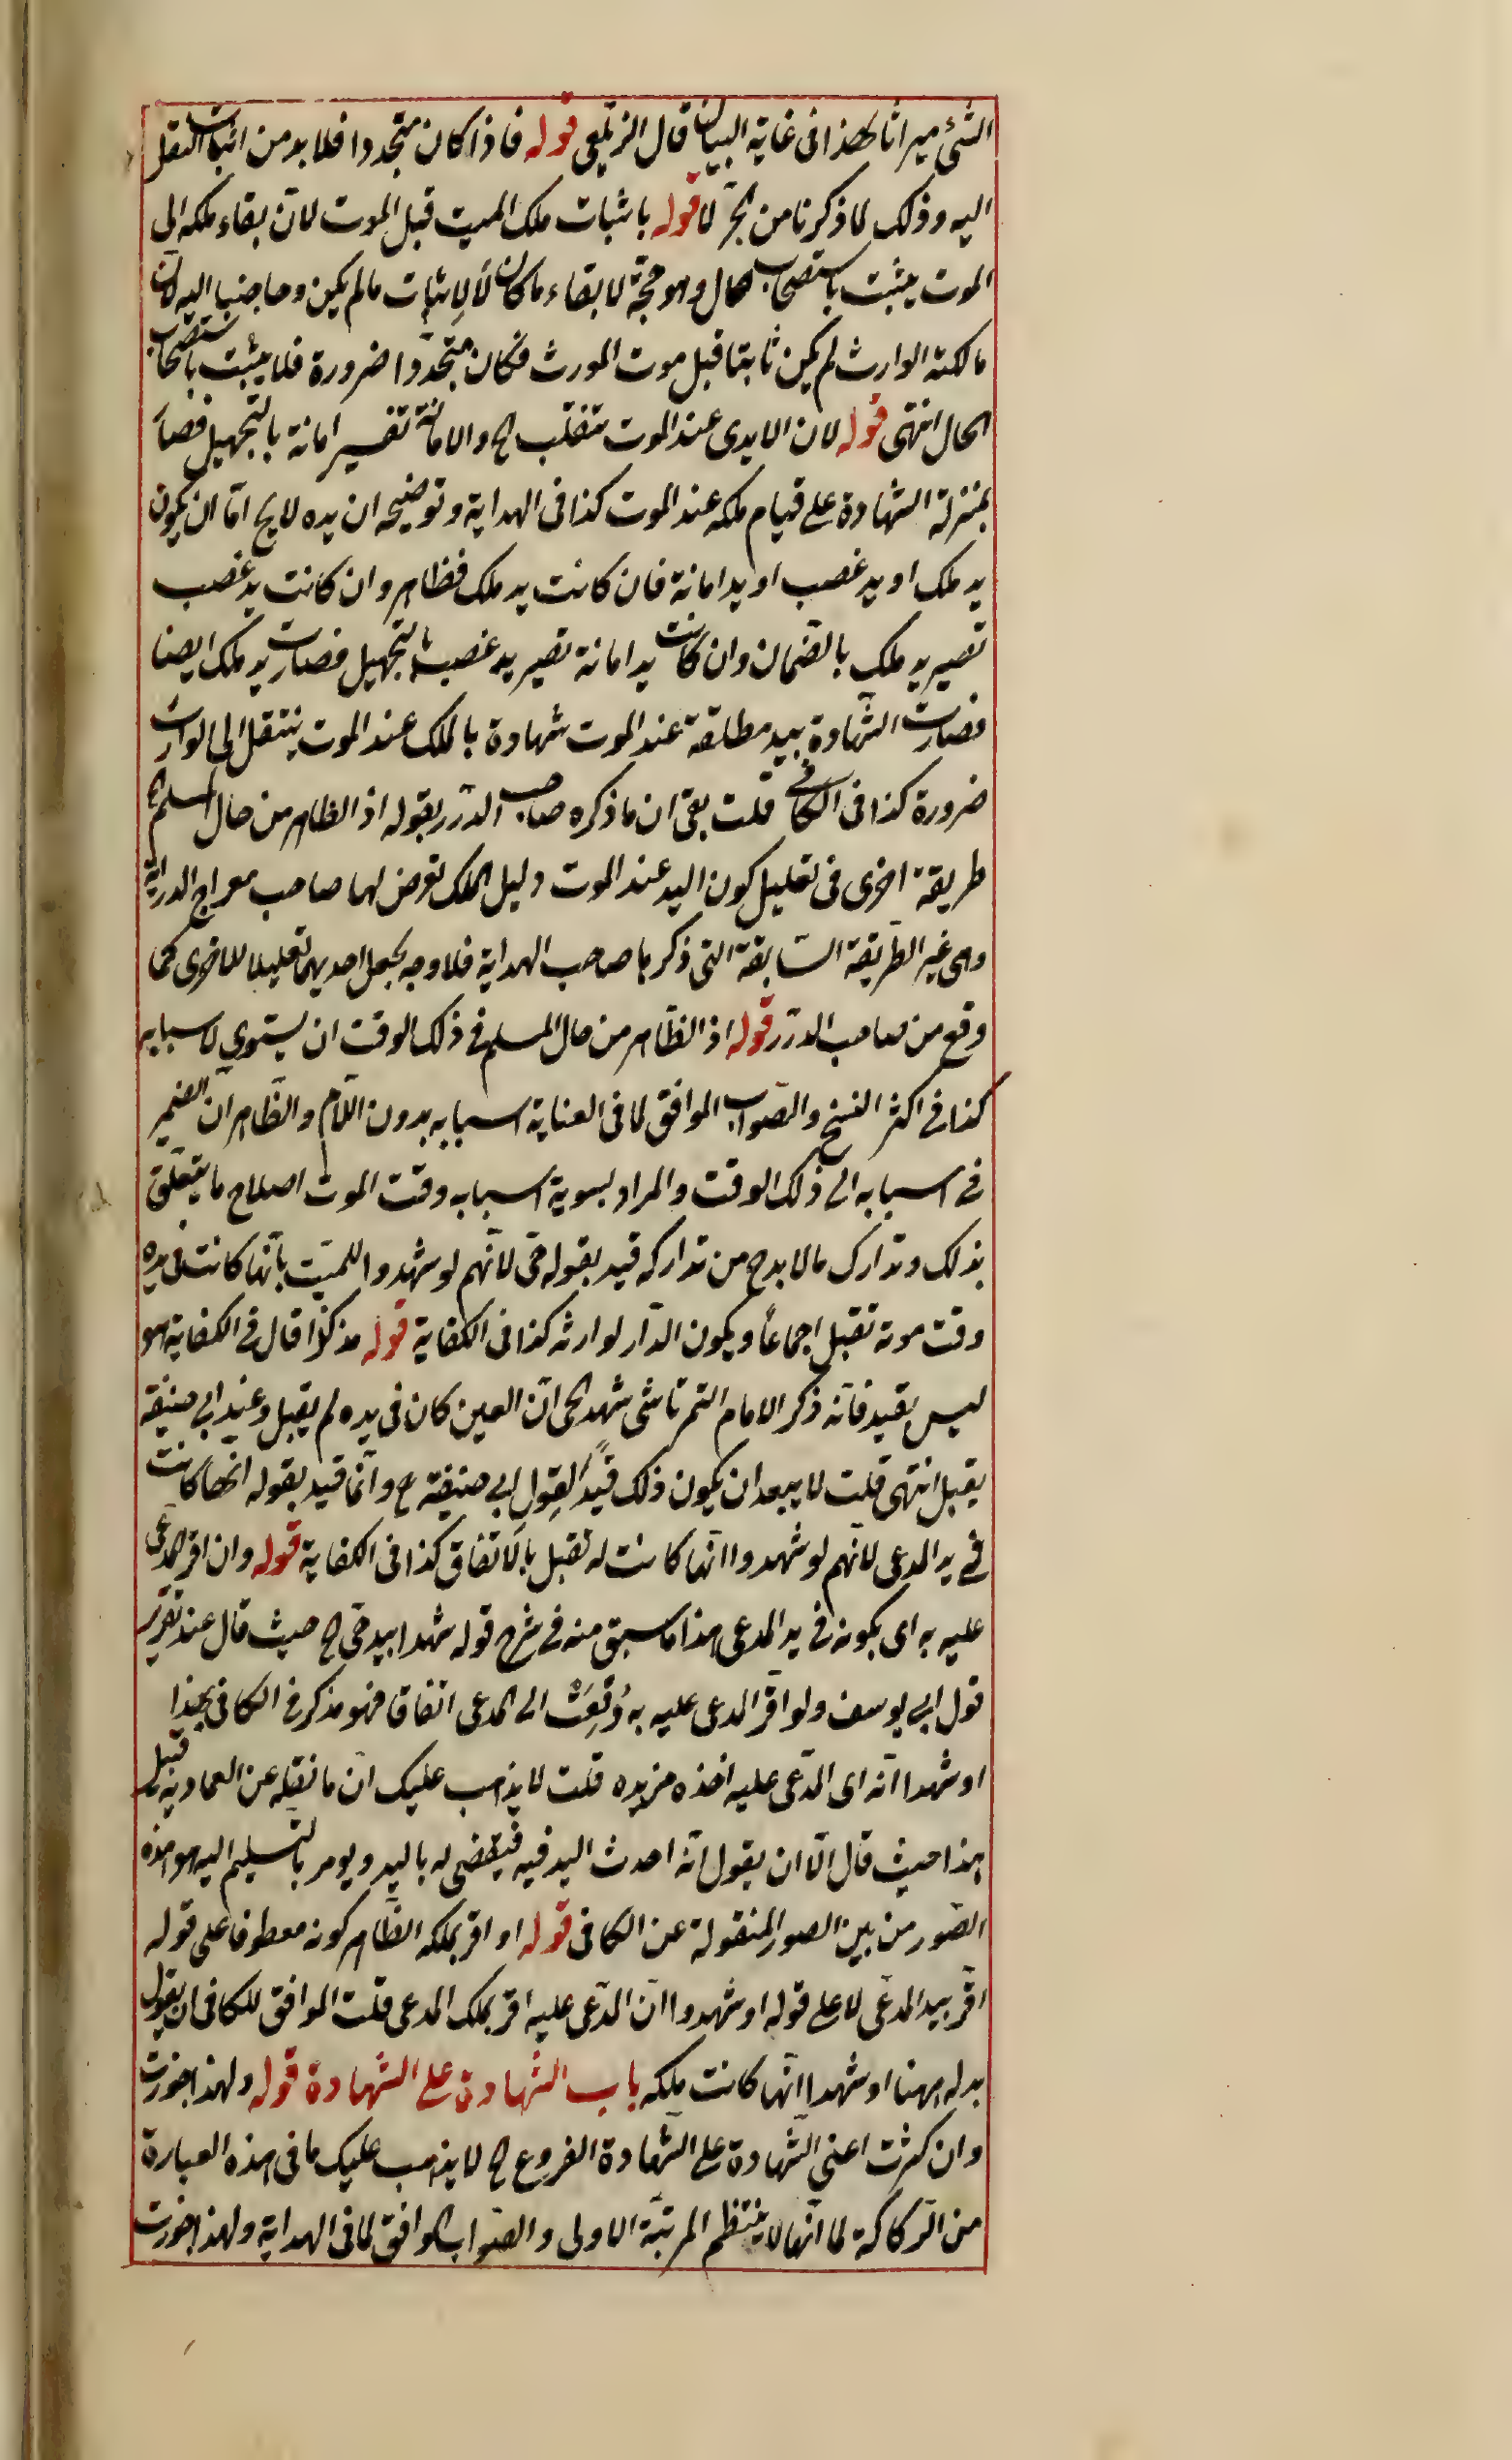 الشئ ميراثا كهذا فى غاية البيان قال الزيلعى قوله فاذا كان متجددا فلا بد من اثبات النقل
اليه وذلك لما ذكرنا من الجر لا قوله باثبات ملك الميت قبل الموت لان بقاء ملكه الى
الموت يثبت باستصحاب الحال وهو حجة لابقاء ما كان لا لاثبات ما لم يكن وحاجتنا اليه لان
مالكية الوارث لم يكن ثابتا قبل موت المورث فكان متجددا ضرورة فلا يثبت باستصحاب
الحال انتهى قوله لان الايدى عند الموت تنقلب الخ والامانة تفسير امانة بالتجهيل فصار
بمنزلة الشهادة على قيام ملكه عند الموت كذا فى الهداية وتوضيحه ان يده لا يخ اما ان يكون
يد ملك او يد غصب او يد امانة فان كانت يد ملك فظاهر وان كانت يد غصب
تصير يد ملك بالضمان وان كانت يد امانة تصير يد غصب بالتجهيل فصارت يد ملك ايضا
فصارت الشهادة بيد مطلقة عند الموت شهادة بالملك عند الموت ينتقل الى الوارث
ضرورة كذا فى الكافى قلت بقى ان ما ذكره صاحب الدرر بقوله اذ الظاهر من حال المسلم الخ
طريقة اخرى فى تعليل كون اليد عند الموت دليل الملك تعرض لها صاحب معراج الدراية
وهى غير الطريقة السابقة التى ذكرها صاحب الهداية فلا وجه لجعل احديهما تعليلا للاخرى كما
وقع من صاحب الدرر قوله اذ الظاهر من حال المسلم فى ذلك الوقت ان يستوي لاسبابه
كذا فى اكثر النسخ والصواب الموافق لما فى العناية اسبابه بدون اللام والظاهر ان الضمير
فى اسبابه الى ذلك الوقت والمراد بسوية اسبابه وقت الموت اصلاح ما يتعلق
بذلك وتدارك ما لا بد ح من تداركه قيد بقوله حى لانهم لو شهدوا للميت بانها كانت فى يده
وقت موته تقبل اجماعا ويكون الدار لوارثه كذا فى الكفاية قوله مذ كذا قال فى الكفاية هو
ليس بقيد فانه ذكر الامام التمرتاشى شهد لحى ان العين كان فى يده لم يقبل وعند ابى حنيفة
يقبل انتهى قلت لا يبعد ان يكون ذلك قيدا لقول ابى حنيفة رح وانما قيد بقوله انها كانت
فى يد المدعى لانهم لو شهدوا انها كانت له تقبل بالاتفاق كذا فى الكفاية قوله وان اقر المدعى
عليه به اى بكونه فى يد المدعى هذا ما سبق منه فى شرح قوله شهدا بيد حى الخ حيث قال عند تقرير
قول ابى يوسف ولو اقر المدعى عليه به دفعت الى المدعى اتفاقا فهو مذكر فى الكافى بهذا
او شهدا انه اى المدعى عليه اخذه من يده قلت لا يذهب عليك ان ما نقله عن العمادية قبيل
هذا حيث قال الا ان يقول انه احدث اليد فيه فيقضى له باليد ويومر بالتسليم اليه هو هذه
الصور من بين الصور المنقولة عن الكافى قوله او اقر بملكه الظاهر كونه معطوفا على قوله
اقر بيد المدعى لا على قوله او شهدوا ان المدعى عليه اقر بملك المدعى قلت الموافق للكافى ان يقول
بدله ههنا او شهدا انها كانت ملكه باب الشهادة على الشهادة قوله ولهذا جوزت
وان كثرت اعنى الشهادة على الشهادة الفروع الخ لا يذهب عليك ما فى هذه العبارة
من الركاكة لما انها لا ينتظم المرتبة الاولى والصواب الموافق لما فى الهداية ولهذا جوزت